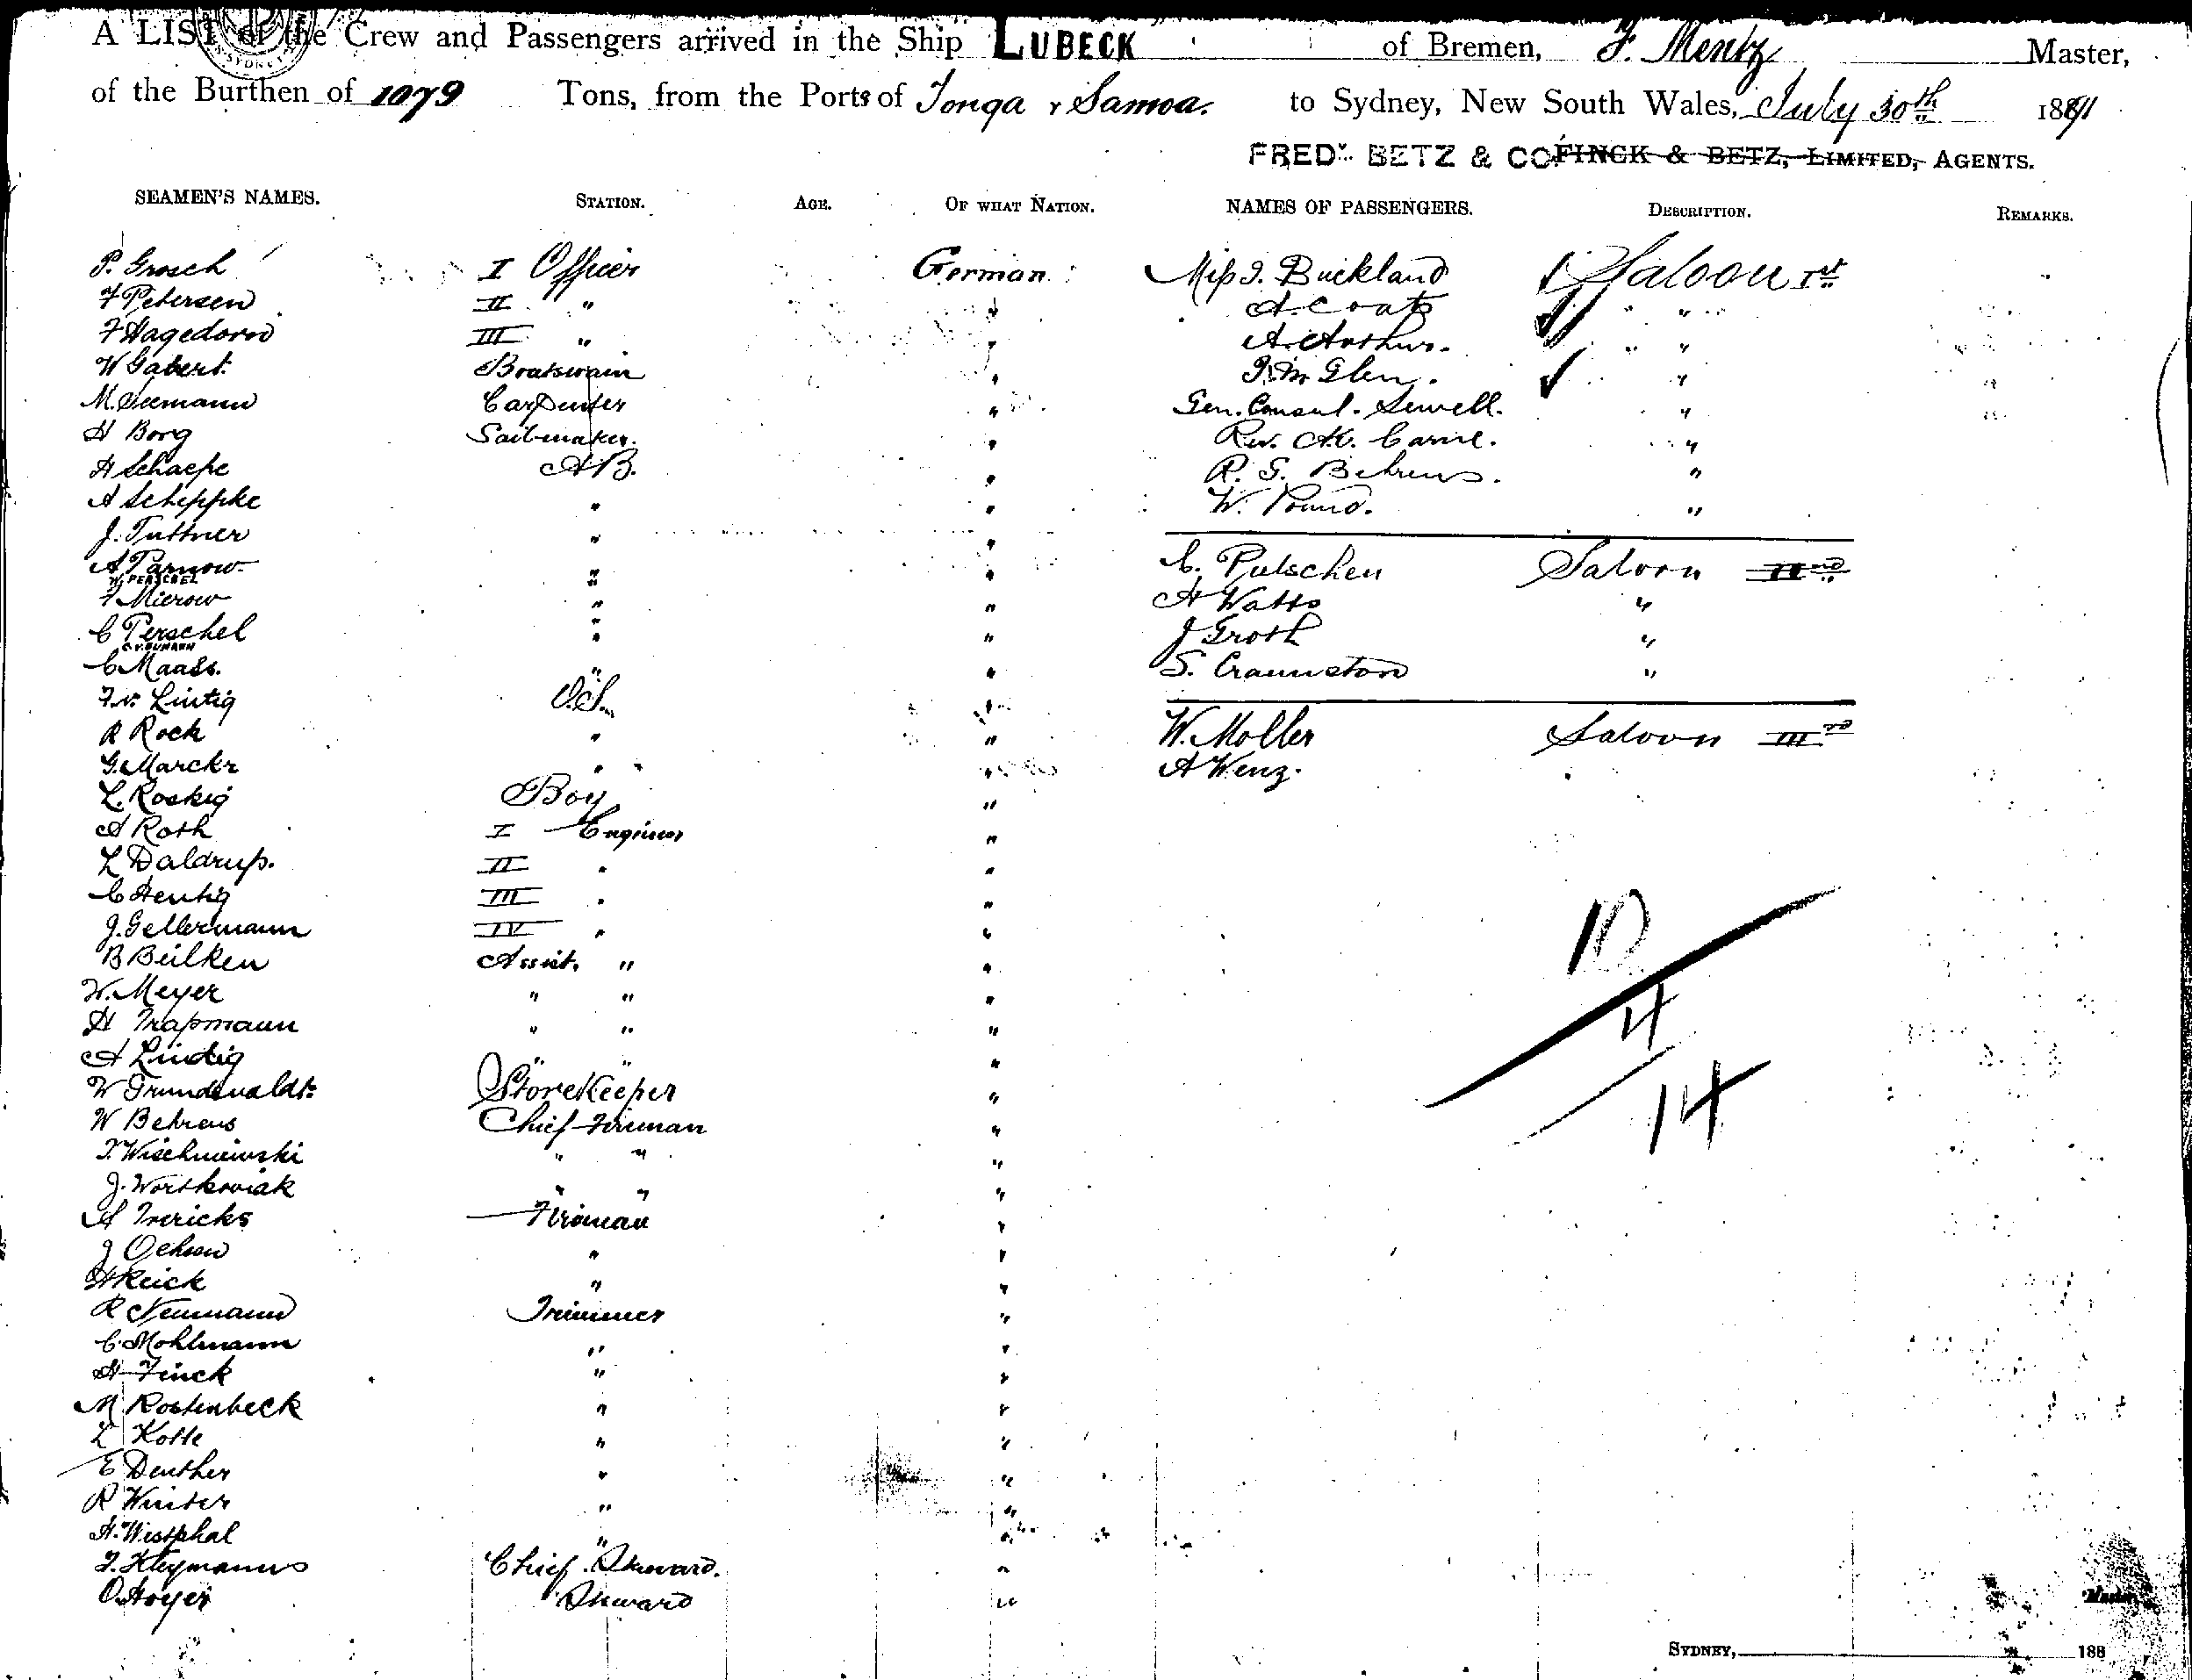 A LIST of the Crew and Passengers arrived in the Ship LUBECK of Bremen, F. Mentz Master,
of the Burthen of 1079 Tons, from the Ports of Tonga & Samoa. to Sydney, New South Wales, July 30th 1891
FREDK. BETZ & CO FINCK & BETZ, LIMITED, AGENTS.
SEAMEN'S NAMES. STATION. AGE. OF WHAT NATION. NAMES OF PASSENGERS. DESCRIPTION. REMARKS.
P. Grosch I Officer German Miss I. Buckland Saloon Ist
F Petersen II " " A. Coats " "
F Hagedorn III " " A. Arthur. " "
W Gabert. Boatswain " Glen. "
M. Seemann Carpenter " Gen. Consul. Sewell. "
H Borg Sailmaker. " Rev. "
H Schaefe A.B. " R. G. Behrens. "
A Scheppke " " W. Pound. "
J. Tuttner " "
A Parnow. " " C. Putschen Saloon IInd
W. PERSCHEL "
F Mierow " " A Watts "
C Perschel " " J Groth "
C Maass. " " S. Craunston "
F. v. Lintig O.S. "
R Rock " " W. Moller Saloon IIIrd
G. Marckr " " A Wenz.
L. Roskig Boy "
A Roth I Engineer "
L Daldrup. II " "
C Hentig III " "
J. Gellermann IV " "
B Beilken Assist. " "
W. Meyer " " "
H Trapmann " " "
A Lindig " " "
W Grundwaldt. Storekeeper "
W Behrens Chief Fireman "
T. Wischniewski " " "
J. Wortkowiak " " "
A Frerichs Fireman "
J Ochsen " "
H Reick " "
R Neumann Trimmer "
C. Mohlmann " "
H Finck " "
M Rostenbeck " "
L Kotte " "
E Deuther " "
R Winter " "
H. Westphal " "
F. Kleymanns Chief Steward. "
O. Hoyer Steward "
10
4
14
Master
SYDNEY, 188